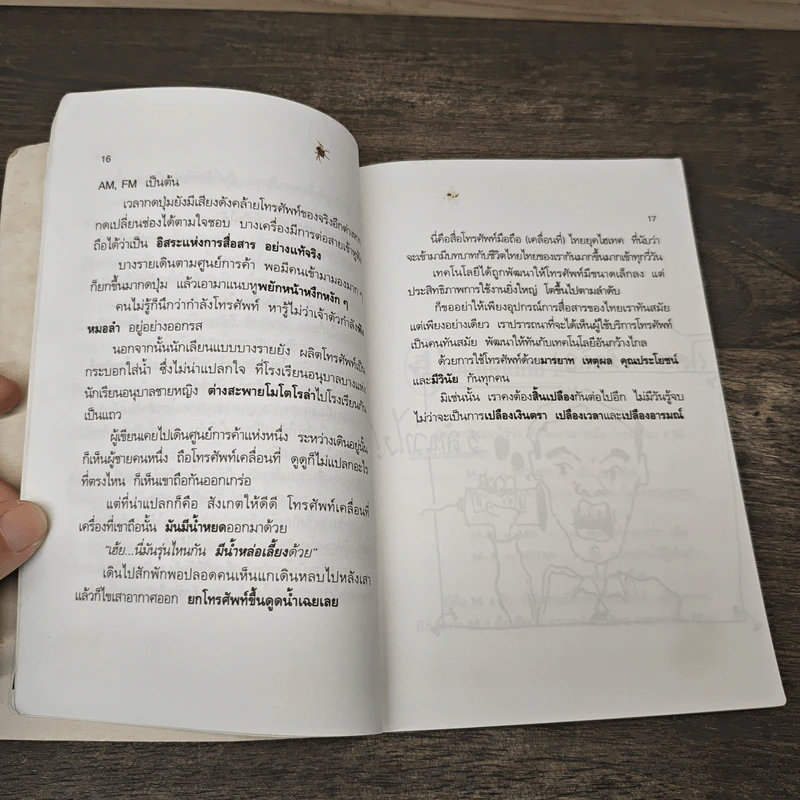 16
AM, FM เป็นต้น
เวลากดปุ่มยังมีเสียงดังคล้ายโทรศัพท์ของจริงอีกต่างหาก
กดเปลี่ยนช่องได้ตามใจชอบ บางเครื่องมีการต่อสายเข้าหูฟัง
ถือได้ว่าเป็น อิสระแห่งการสื่อสาร อย่างแท้จริง
บางรายเดินตามศูนย์การค้า พอมีคนเข้ามามองมาก ๆ
ก็ยกขึ้นมากดปุ่ม แล้วเอามาแนบหูพยักหน้าหงึกหงัก ๆ
คนไม่รู้ก็นึกว่ากำลังโทรศัพท์ หารู้ไม่ว่าเจ้าตัวกำลังฟัง
หมอลำ อยู่อย่างออกรส
นอกจากนั้นนักเลียนแบบบางรายยัง ผลิตโทรศัพท์เป็น
กระบอกใส่น้ำ ซึ่งไม่น่าแปลกใจ ที่โรงเรียนอนุบาลบางแห่ง
นักเรียนอนุบาลชายหญิง ต่างสะพายโมโตโรล่าไปโรงเรียนกัน
เป็นแถว
ผู้เขียนเคยไปเดินศูนย์การค้าแห่งหนึ่ง ระหว่างเดินอยู่นั้น
ก็เห็นผู้ชายคนหนึ่ง ถือโทรศัพท์เคลื่อนที่ ดูดูก็ไม่แปลกอะไร
ที่ตรงไหน ก็เห็นเขาถือกันออกเกร่อ
แต่ที่น่าแปลกก็คือ สังเกตให้ดีดี โทรศัพท์เคลื่อนที่
เครื่องที่เขาถือนั้น มันมีน้ำหยดออกมาด้วย
“เฮ้ย...นี่มันรุ่นไหนกัน มีน้ำหล่อเลี้ยงด้วย”
เดินไปสักพักพอปลอดคนเห็นแกเดินหลบไปหลังเสา
แล้วก็ไขเสาอากาศออก ยกโทรศัพท์ขึ้นดูดน้ำเฉยเลย
17
นี่คือสื่อโทรศัพท์มือถือ (เคลื่อนที่) ไทยยุคไฮเทค ที่นับว่า
จะเข้ามามีบทบาทกับชีวิตไทยไทยของเรากันมากขึ้นมากเข้าทุกวี่วัน
เทคโนโลยีได้ถูกพัฒนาให้โทรศัพท์มีขนาดเล็กลง แต่
ประสิทธิภาพการใช้งานยิ่งใหญ่ โตขึ้นไปตามลำดับ
ก็ขออย่าให้เพียงอุปกรณ์การสื่อสารของไทยเราทันสมัย
แต่เพียงอย่างเดียว เราปรารถนาที่จะได้เห็นผู้ใช้บริการโทรศัพท์
เป็นคนทันสมัย พัฒนาให้ทันกับเทคโนโลยีอันกว้างไกล
ด้วยการใช้โทรศัพท์ด้วยมารยาท เหตุผล คุณประโยชน์
และมีวินัย กันทุกคน
มิเช่นนั้น เราคงต้องสิ้นเปลืองกันต่อไปอีก ไม่มีวันรู้จบ
ไม่ว่าจะเป็นการเปลืองเงินตรา เปลืองเวลาและเปลืองอารมณ์